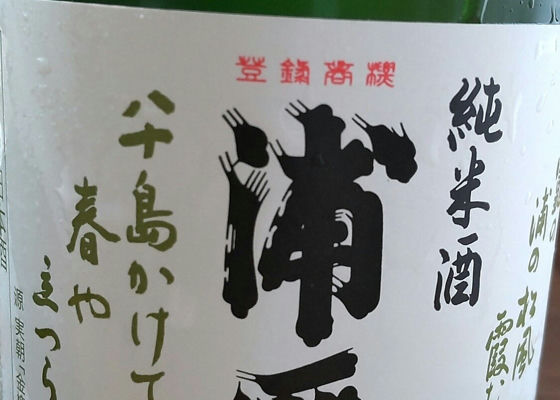 登錄商標
純米酒
浦の松風
霞
浦
八十島かけて
春や
つら